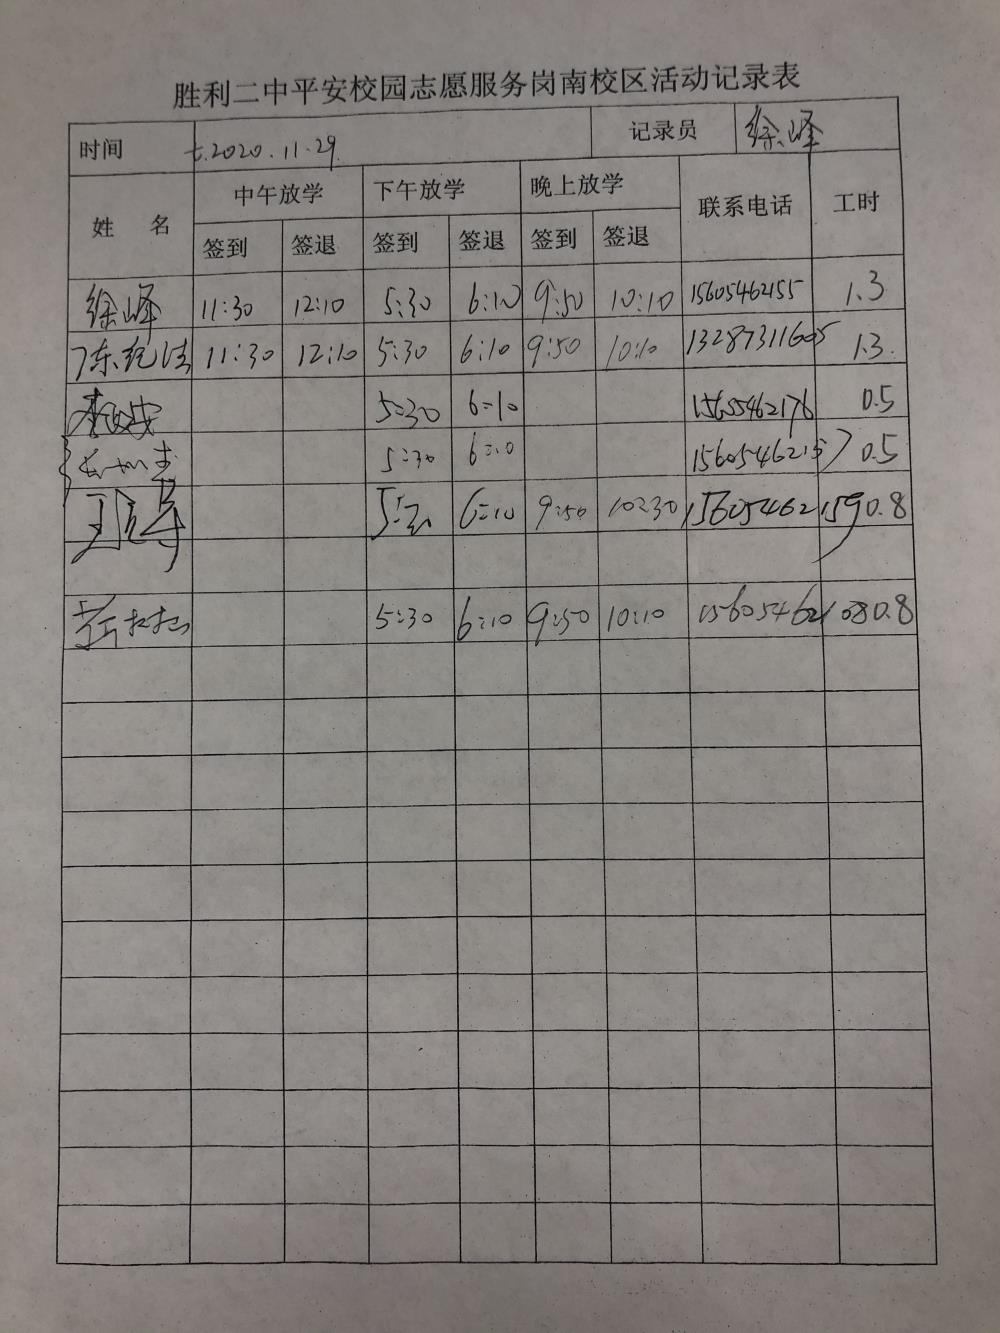 胜利二中平安校园志愿服务岗南校区活动记录表
时间 2020.11.29 记录员 徐峰
姓 名 中午放学 下午放学 晚上放学 联系电话 工时
签到 签退 签到 签退 签到 签退
徐峰 11:30 12:10 5:30 6:10 9:50 10:10 15605462155 1.3
陈纪法 11:30 12:10 5:30 6:10 9:50 10:10 13287311605 1.3
5:30 6:10 0.5
5:30 6:10 0.5
5:30 6:10 9:50 10:30 15605462159 0.8
5:30 6:10 9:50 10:10 15605462108 0.8